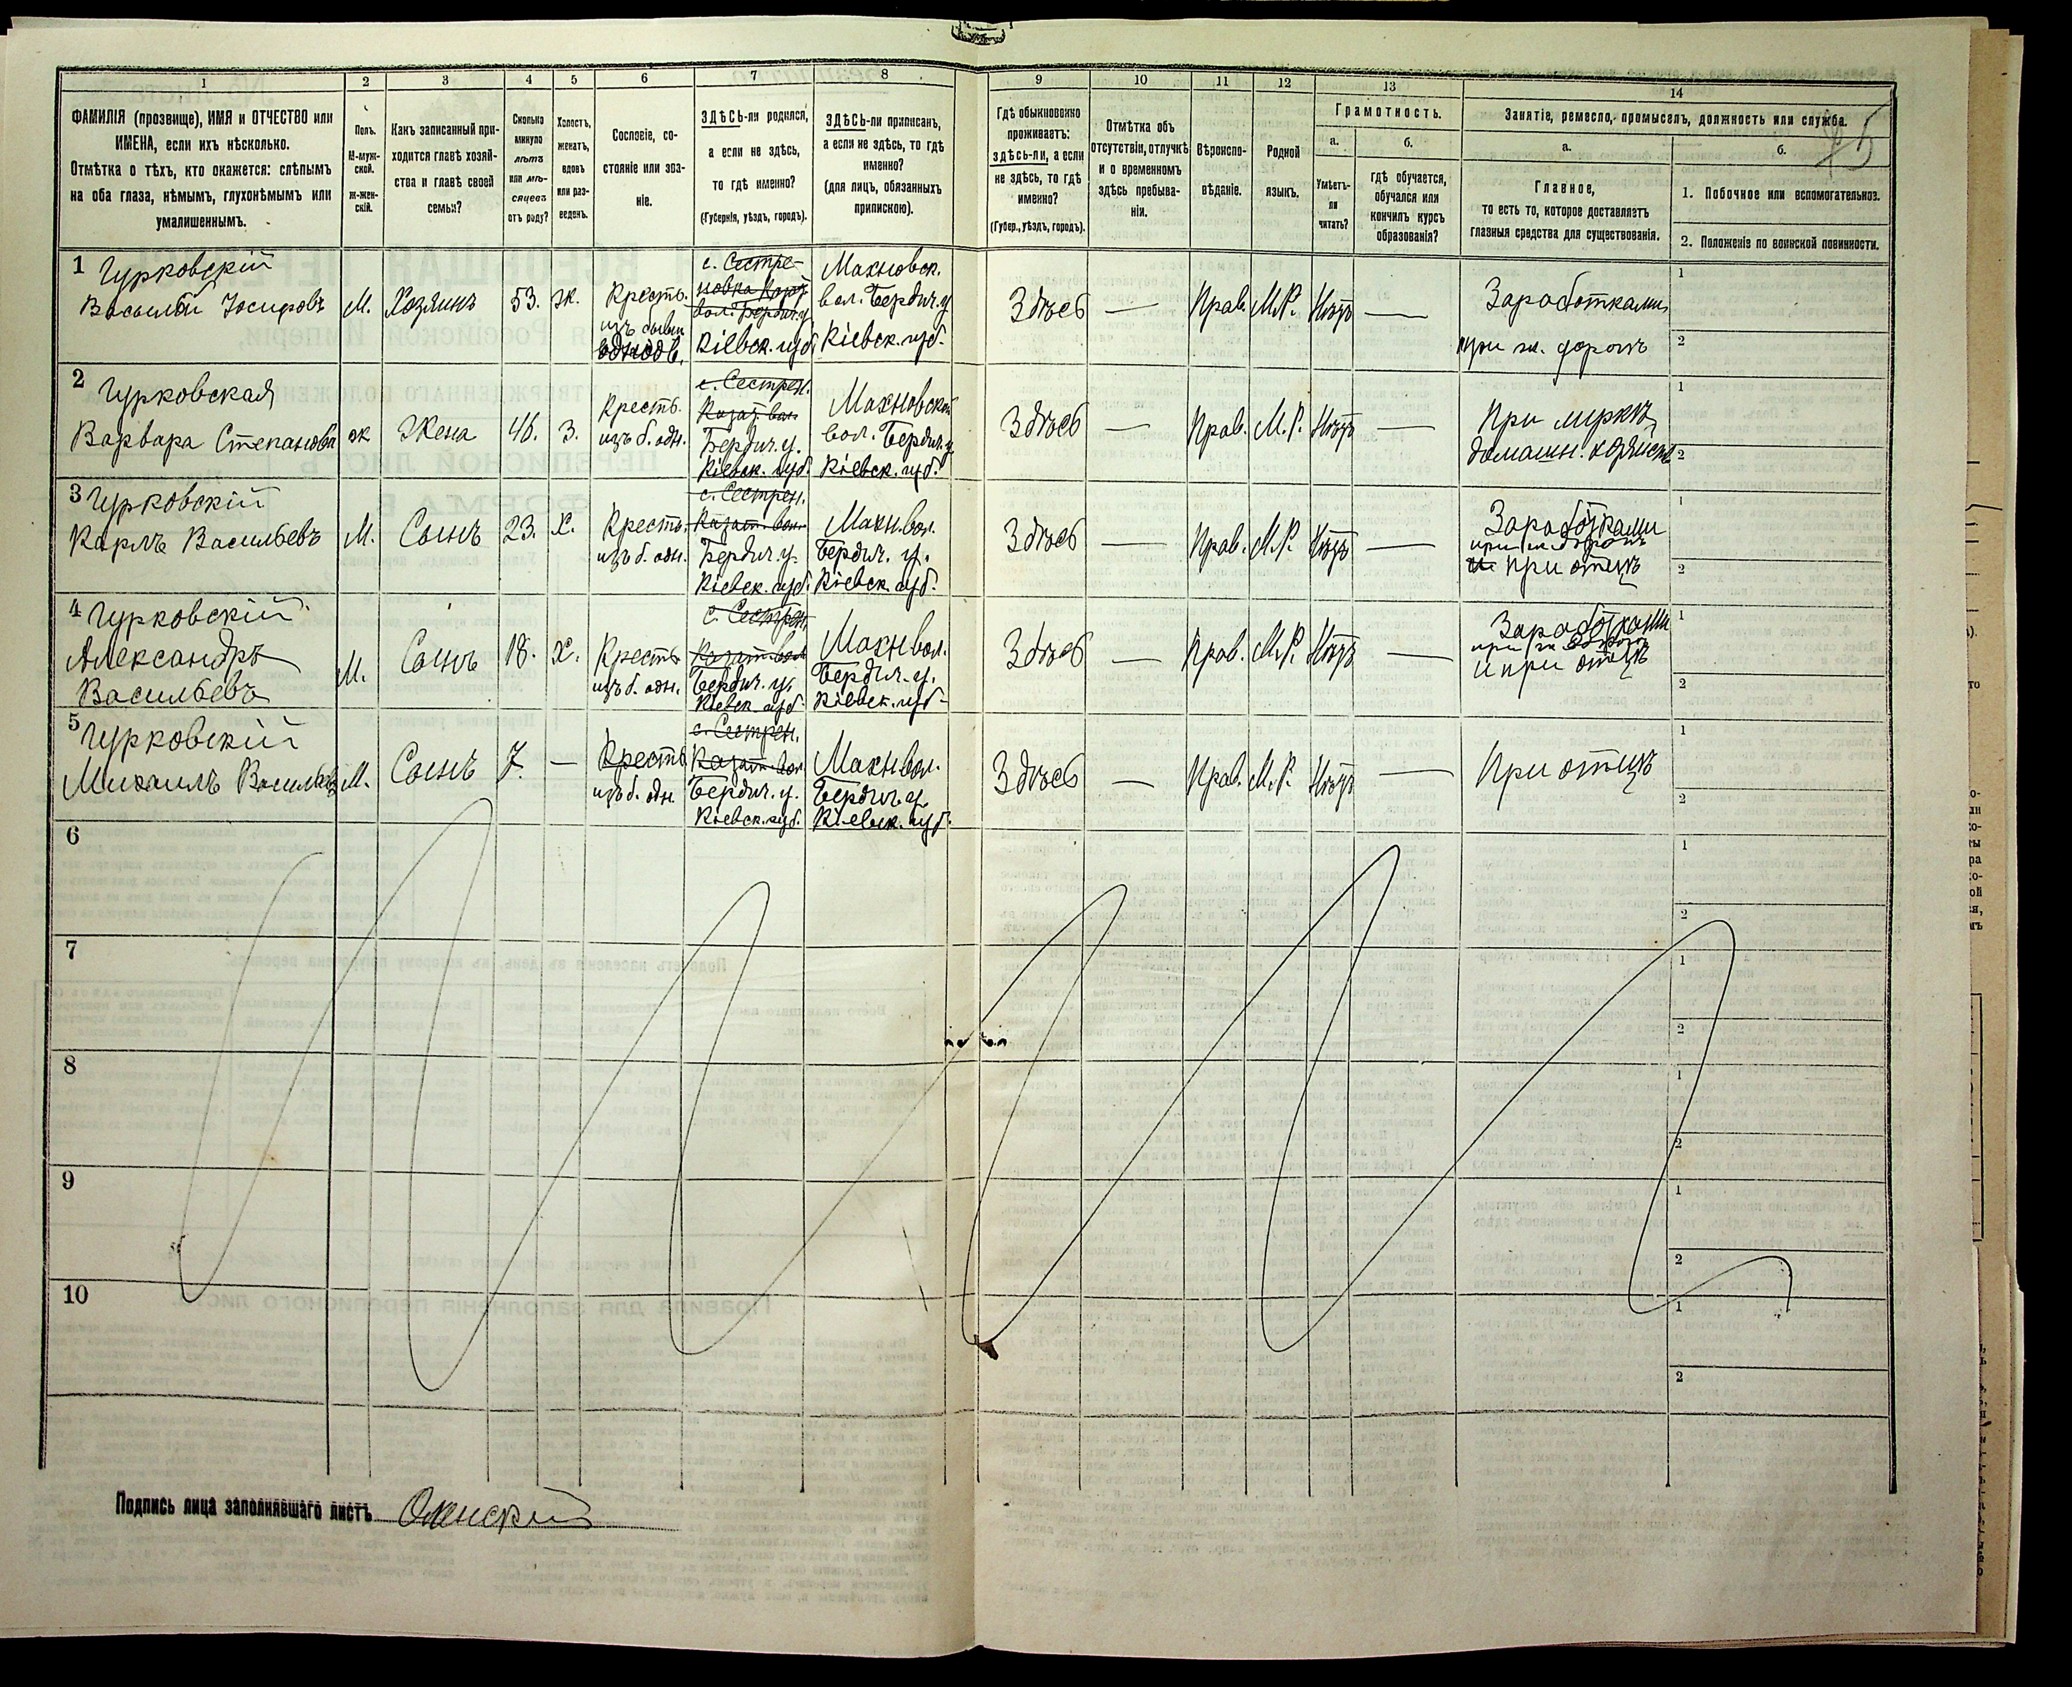 1 2 3 4 5 6 7 8 9 10 11 12 13 14
ФАМИЛІЯ (прозвище), ИМЯ и ОТЧЕСТВО или
ИМЕНА, если ихъ нѣсколько.
Отмѣтка о тѣхъ, кто окажется: слѣпымъ
на оба глаза, нѣмымъ, глухонѣмымъ или
умалишеннымъ.
Полъ.
М-муж-
ской.
Ж-жен-
скій.
Какъ записанный при-
ходится главѣ хозяй-
ства и главѣ своей
семьи?
Сколько
минуло
лѣтъ
или мѣ-
сяцевъ
отъ роду?
Холостъ,
женатъ,
вдовъ
или раз-
веденъ.
Сословіе, со-
стояніе или зва-
ніе.
ЗДѢСЬ-ли родился,
а если не здѣсь,
то гдѣ именно?
(Губернія, уѣздъ, городъ).
ЗДѢСЬ-ли приписанъ,
а если не здѣсь, то гдѣ
именно?
(для лицъ, обязанныхъ
припискою).
Гдѣ обыкновенно
проживаетъ:
здѣсь-ли, а если
не здѣсь, то гдѣ
именно?
(Губер., уѣздъ, городъ).
Отмѣтка объ
отсутствіи, отлучкѣ
и о временномъ
здѣсь пребыва-
ніи.
Вѣроиспо-
вѣданіе.
Родной
языкъ.
Грамотность.
а.
Умѣетъ-
ли
читать?
б.
гдѣ обучается,
обучался или
кончилъ курсъ
образованія?
Занятіе, ремесло, промыселъ, должность или служба.
а.
Главное,
то есть то, которое доставляетъ
главныя средства для существованія.
б.
1. Побочное или вспомогательное.
2. Положеніе по воинской повинности.
1 Гурковскій
Василій Іосифовъ
М.
Хозяинъ
53.
ж.
Кресть.
изъ бывш.
однодв.
с. Сестре-
новка
вол. Бердич. у
Кіевск. губ.
Махновск.
вол. Бердич. у
Кіевск. губ.
Здѣсь
—
Прав.
М.Р.
Нѣтъ
—
Заработками
при ж. дорогѣ
1
2
2 Гурковская
Варвара Степанова
ж
Жена
46.
З.
Кресть.
изъ б. одн.
с. Сестрен.
Казат. вол.
Бердич. у.
Кіевск. губ.
Махновской
вол. Бердич. у
Кіевск. губ.
Здѣсь
—
Прав.
М.Р.
Нѣтъ
—
При мужѣ
домашн. хозяйств
1
2
3 Гурковскій
Карлъ Васильевъ
М.
Сынъ
23.
Х.
Кресть.
изъ б. одн.
с. Сестрен.
Казат. вол.
Бердич. у.
Кіевск. губ.
Махн. вол.
Бердич. у.
Кіевск. губ.
Здѣсь
—
Прав.
М.Р.
Нѣтъ
—
Заработками
при ж. дорогѣ
и при отцѣ
1
2
4 Гурковскій
Александръ
Васильевъ
М.
Сынъ
18.
Х.
Кресть.
изъ б. одн.
с. Сестрен.
Казат. вол.
Бердич. у.
Кіевск. губ.
Махн. вол.
Бердич. у.
Кіевск. губ.
Здѣсь
—
Прав.
М.Р.
Нѣтъ
—
Заработками
при ж. дорогѣ
и при отцѣ
1
2
5 Гурковскій
Михаилъ Васильевъ
М.
Сынъ
7.
—
Кресть.
изъ б. одн.
с. Сестрен.
Казат. вол.
Бердич. у.
Кіевск. губ.
Махн. вол.
Бердич. у.
Кіевск. губ.
Здѣсь
—
Прав.
М.Р.
Нѣтъ
—
При отцѣ
1
2
6
1
2
7
1
2
8
1
2
9
1
2
10
1
2
Подпись лица заполнявшаго листъ